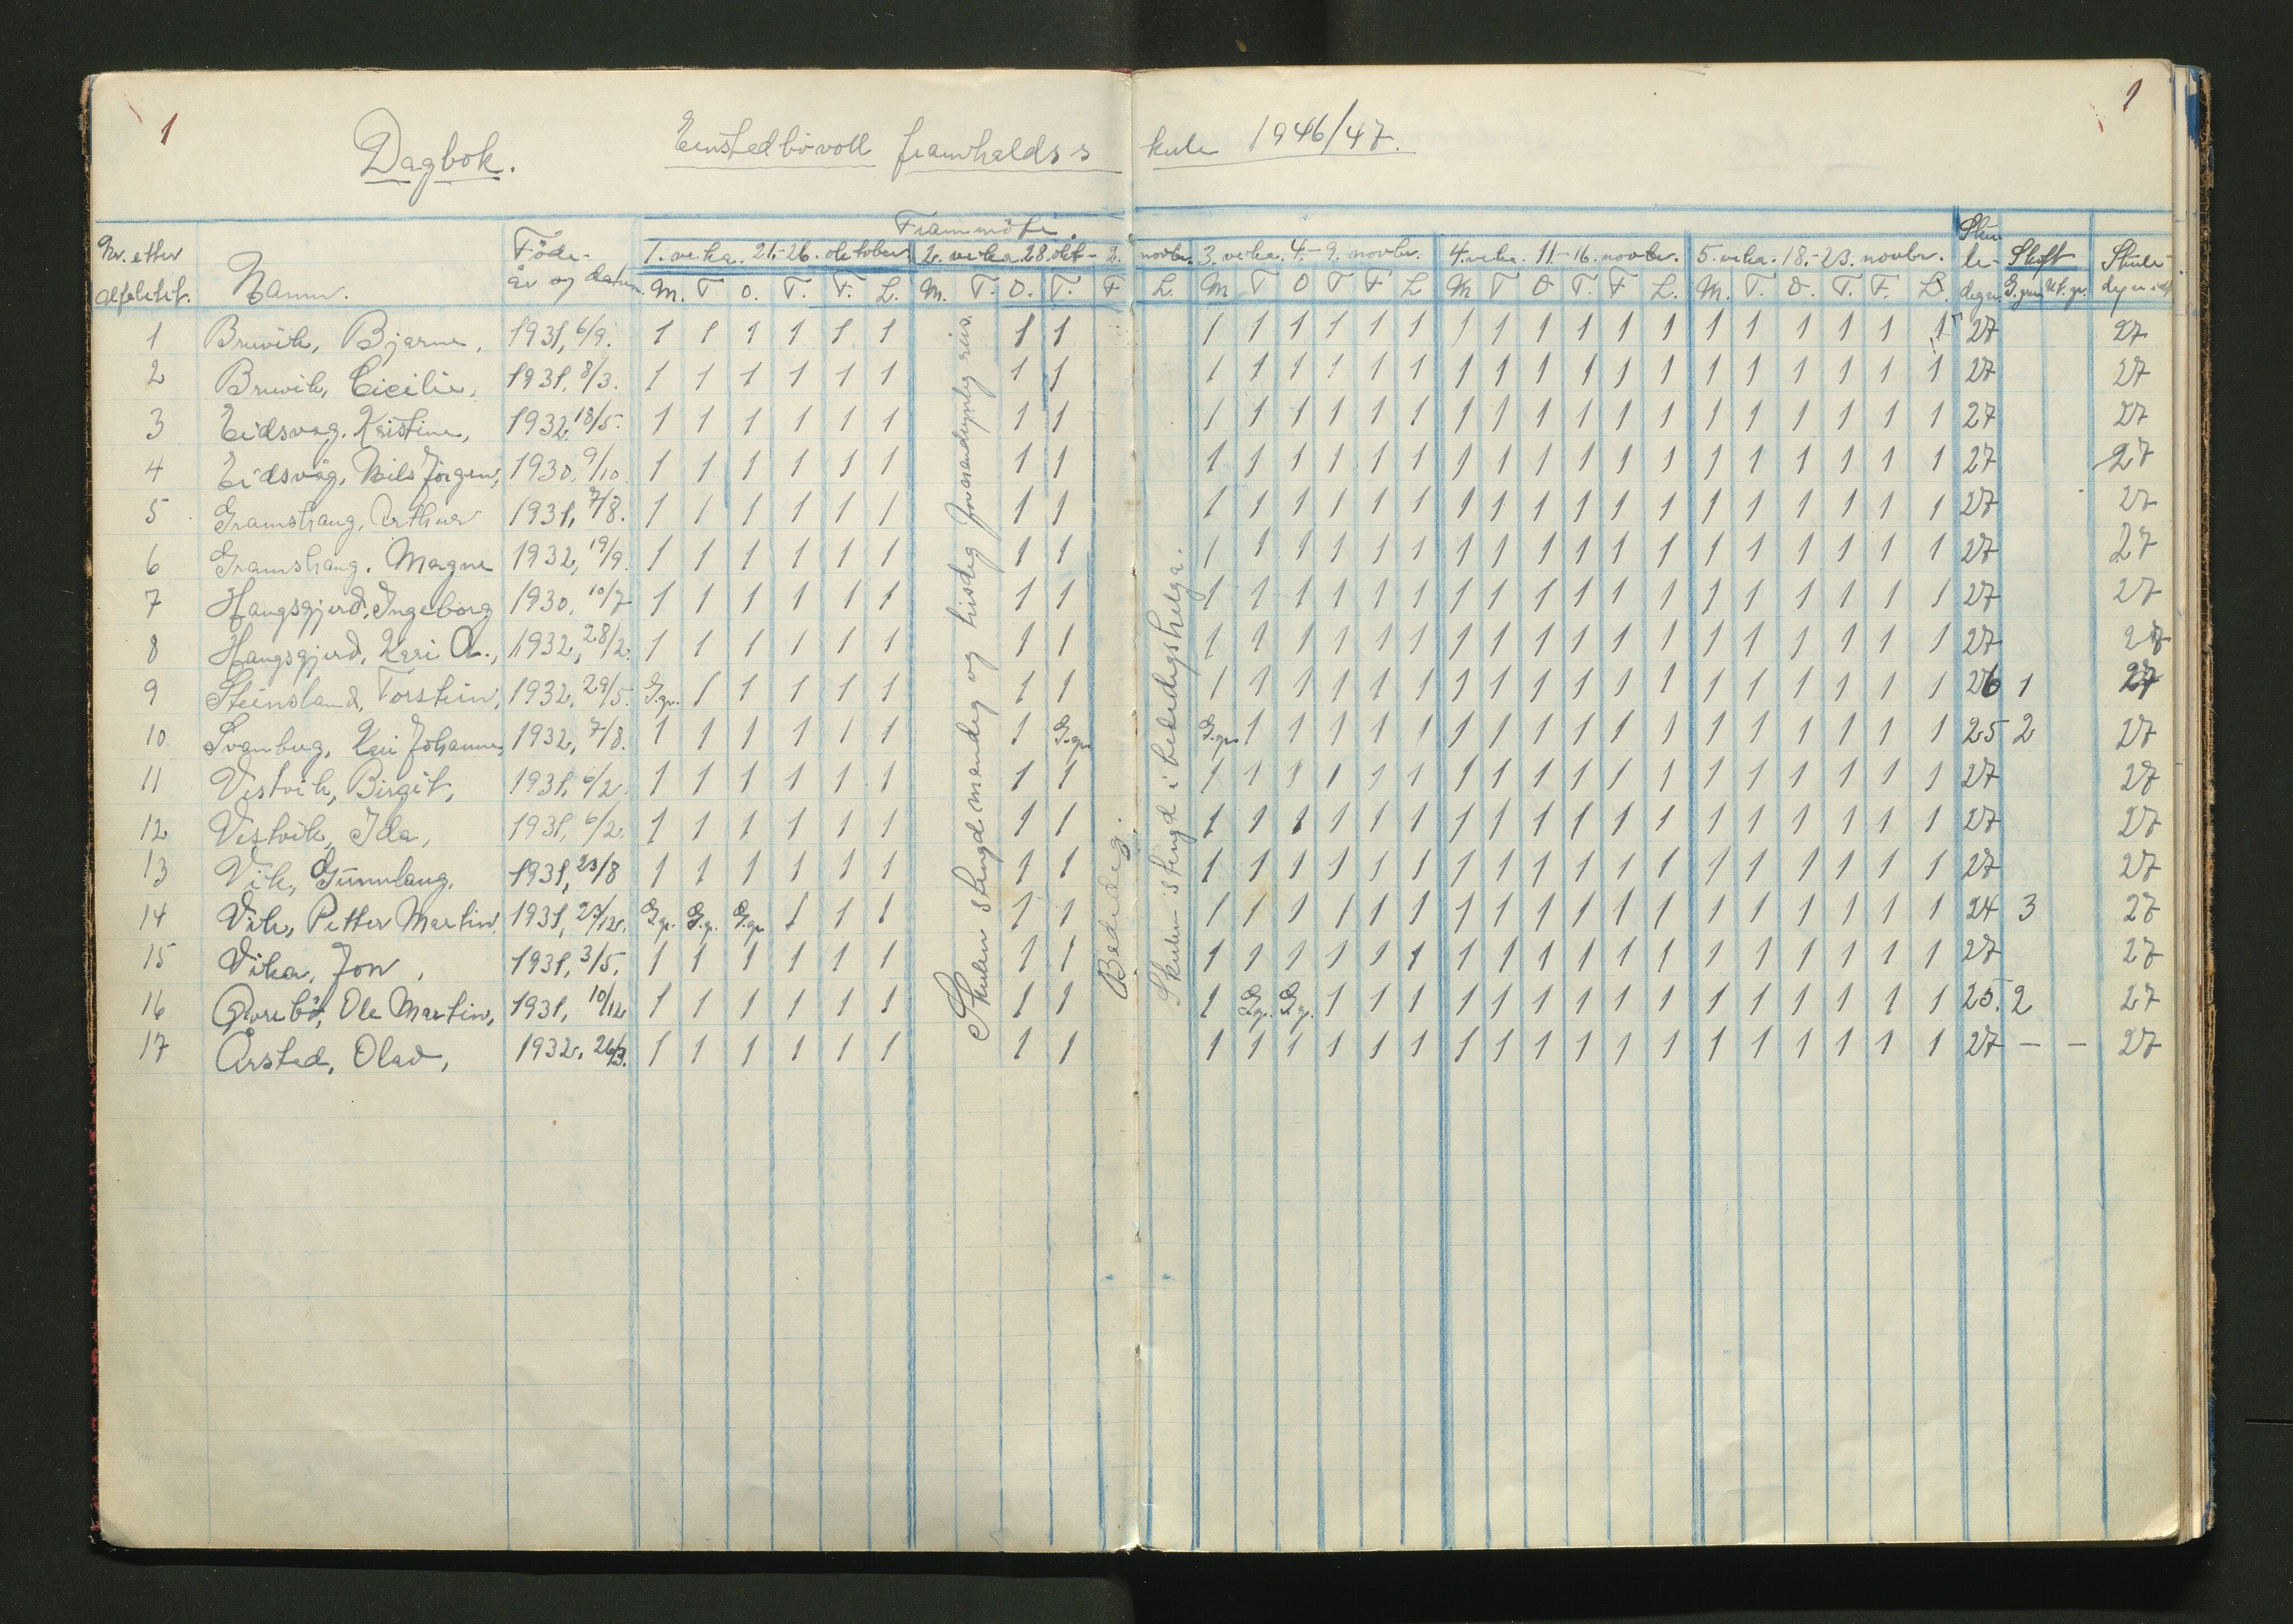 1
1
Dagbok. framhaldsskule 1946/47.
Frammöte.
Nr. etter alfabetet. Namn. Föde- år og datum. 1. veka. 21.-26. oktober 2. veka 28. okt.- 2. novbr. 3. veka. 4.-9. novbr. 4. veka. 11.-16. novbr. 5. veka. 18.-23. novbr. Skule- dagar. Skoft G.grun Ut. gr. Skule-
M. T O. T. F. L. M. T. O. T. F L. M T O T F L M T O T. F L. M. T. O. T. F. L.
1 Bruvik, Bjarne, 1931, 6/9. 1 1 1 1 1 1 1 1 1 1 1 1 1 1 1 1 1 1 1 1 1 1 1 1 1 1 27 27
2 Bruvik, Cicilie, 1931, 8/3. 1 1 1 1 1 1 1 1 1 1 1 1 1 1 1 1 1 1 1 1 1 1 1 1 1 1 27 27
3 Eidsvåg, Kristine, 1932, 18/5. 1 1 1 1 1 1 1 1 1 1 1 1 1 1 1 1 1 1 1 1 1 1 1 1 1 1 27 27
4 Eidsvåg, Nils Jörgen, 1930, 9/10. 1 1 1 1 1 1 1 1 1 1 1 1 1 1 1 1 1 1 1 1 1 1 1 1 1 1 27 27
5 Gramshaug, Arthur 1931, 7/8. 1 1 1 1 1 1 1 1 1 1 1 1 1 1 1 1 1 1 1 1 1 1 1 1 1 1 27 27
6 Gramshaug, Magne 1932, 19/9. 1 1 1 1 1 1 1 1 1 1 1 1 1 1 1 1 1 1 1 1 1 1 1 1 1 1 27 27
7 Haugsgjerd, Ingeborg 1930, 10/7 1 1 1 1 1 1 1 1 1 1 1 1 1 1 1 1 1 1 1 1 1 1 1 1 1 1 27 27
8 Haugsgjerd, Kari A., 1932, 28/2. 1 1 1 1 1 1 1 1 1 1 1 1 1 1 1 1 1 1 1 1 1 1 1 1 1 1 27 27
9 Steinsland, Torstein, 1932, 29/5. G.gr. 1 1 1 1 1 1 1 1 1 1 1 1 1 1 1 1 1 1 1 1 1 1 1 1 1 26 1 27
10 Svanberg, Kari Johanne, 1932, 7/8. 1 1 1 1 1 1 1 G.gr. G.gr. 1 1 1 1 1 1 1 1 1 1 1 1 1 1 1 1 1 25 2 27
11 Vestvik, Birgit, 1931, 6/2. 1 1 1 1 1 1 1 1 1 1 1 1 1 1 1 1 1 1 1 1 1 1 1 1 1 1 27 27
12 Vestvik, Ida, 1931, 6/2. 1 1 1 1 1 1 1 1 1 1 1 1 1 1 1 1 1 1 1 1 1 1 1 1 1 1 27 27
13 Vik, Gunnlaug, 1931, 23/8 1 1 1 1 1 1 1 1 1 1 1 1 1 1 1 1 1 1 1 1 1 1 1 1 1 1 27 27
14 Vik, Petter Martin, 1931, 23/12. G.gr. G.gr. G.gr. 1 1 1 1 1 1 1 1 1 1 1 1 1 1 1 1 1 1 1 1 1 1 1 24 3 27
15 Vika, Jon, 1931, 3/5. 1 1 1 1 1 1 1 1 1 1 1 1 1 1 1 1 1 1 1 1 1 1 1 1 1 1 27 27
16 Ole Martin, 1931, 10/12 1 1 1 1 1 1 1 1 1 G.gr. G.gr. 1 1 1 1 1 1 1 1 1 1 1 1 1 1 1 25. 2 27
17 Årstad, Olav, 1932, 26/3. 1 1 1 1 1 1 1 1 1 1 1 1 1 1 1 1 1 1 1 1 1 1 1 1 1 1 27 - - 27
Skulen stengd mandag og tisdag
Bededag.
Skulen stengd i bededagshelga.